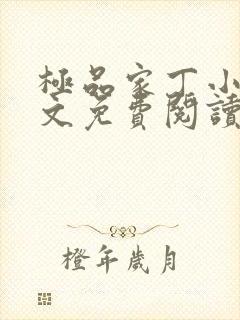 極品家丁小
文免費閱讀
橙年歲月